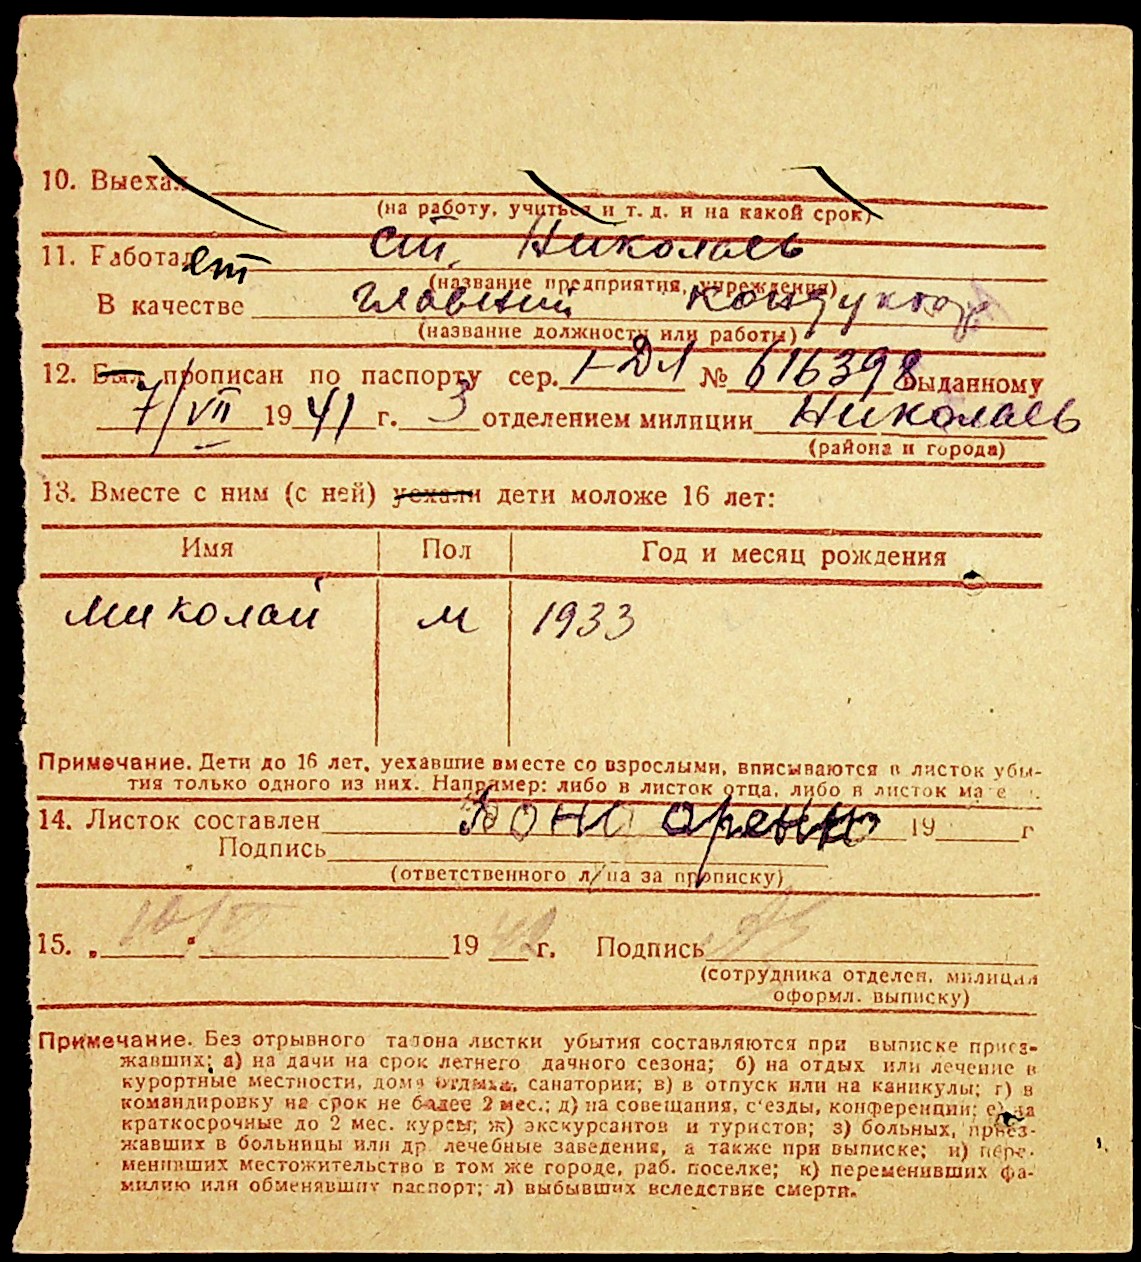 10. Выехал
(на работу, учиться и т. д. и на какой срок)
11. Работает ст. Николаев
(название предприятия, учреждения)
В качестве главний кондуктор
(название должности или работы)
12. Был прописан по паспорту сер. I-ДЛ № 616398 выданному
7/VII 1941 г. 3 отделением милиции Николаев
(района и города)
13. Вместе с ним (с ней) уехали дети моложе 16 лет:
Имя Пол Год и месяц рождения
Миколай м 1933
Примечание. Дети до 16 лет, уехавшие вместе со взрослыми, вписываются в листок убы-
тия только одного из них. Например: либо в листок отца, либо в листок
14. Листок составлен 19 г
Подпись
(ответственного лица за прописку)
15. „ “ 1942 г. Подпись
(сотрудника отделен. милиции
оформл. выписку)
Примечание. Без отрывного талона листки убытия составляются при выписке приез-
жавших: а) на дачи на срок летнего дачного сезона; б) на отдых или лечение в
курортные местности, дома отдыха, санатории; в) в отпуск или на каникулы; г) в
командировку на срок не более 2 мес.; д) на совещания, с'езды, конференции; е) на
краткосрочные до 2 мес. курсы; ж) экскурсантов и туристов; з) больных, приез-
жавших в больницы или др лечебные заведения, а также при выписке; и) пере-
менивших местожительство в том же городе, раб. поселке; к) переменивших фа-
милию или обменявших паспорт; л) выбывших вследствие смерти.